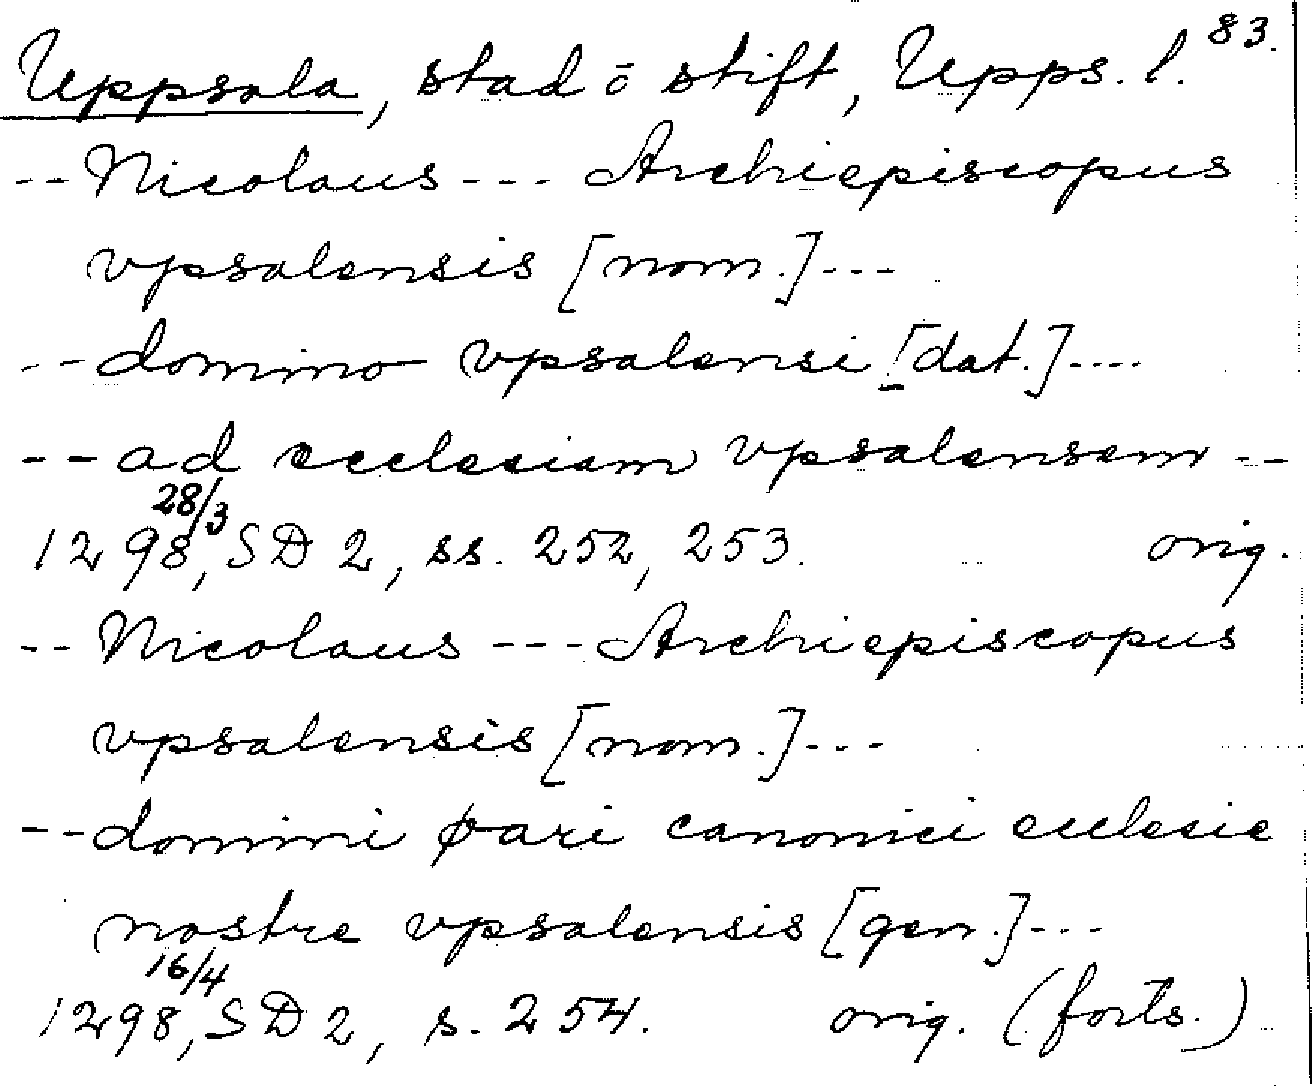 83.
Uppsala, stad ō stift, Upps. l.
-- Nicolaus --- Archiepiscopus
vpsalensis [nom.] ---
-- domino vpsalensi [dat.] ----
-- ad ecclesiam vpsalensem --
28/3
1298, SD 2, ss. 252, 253. orig.
-- Nicolaus --- Archiepiscopus
vpsalensis [nom.] ---
-- domini øari canonici ecclesie
nostre vpsalensis [gen.] ---
16/4
1298, SD 2, s. 254. orig. (forts.)